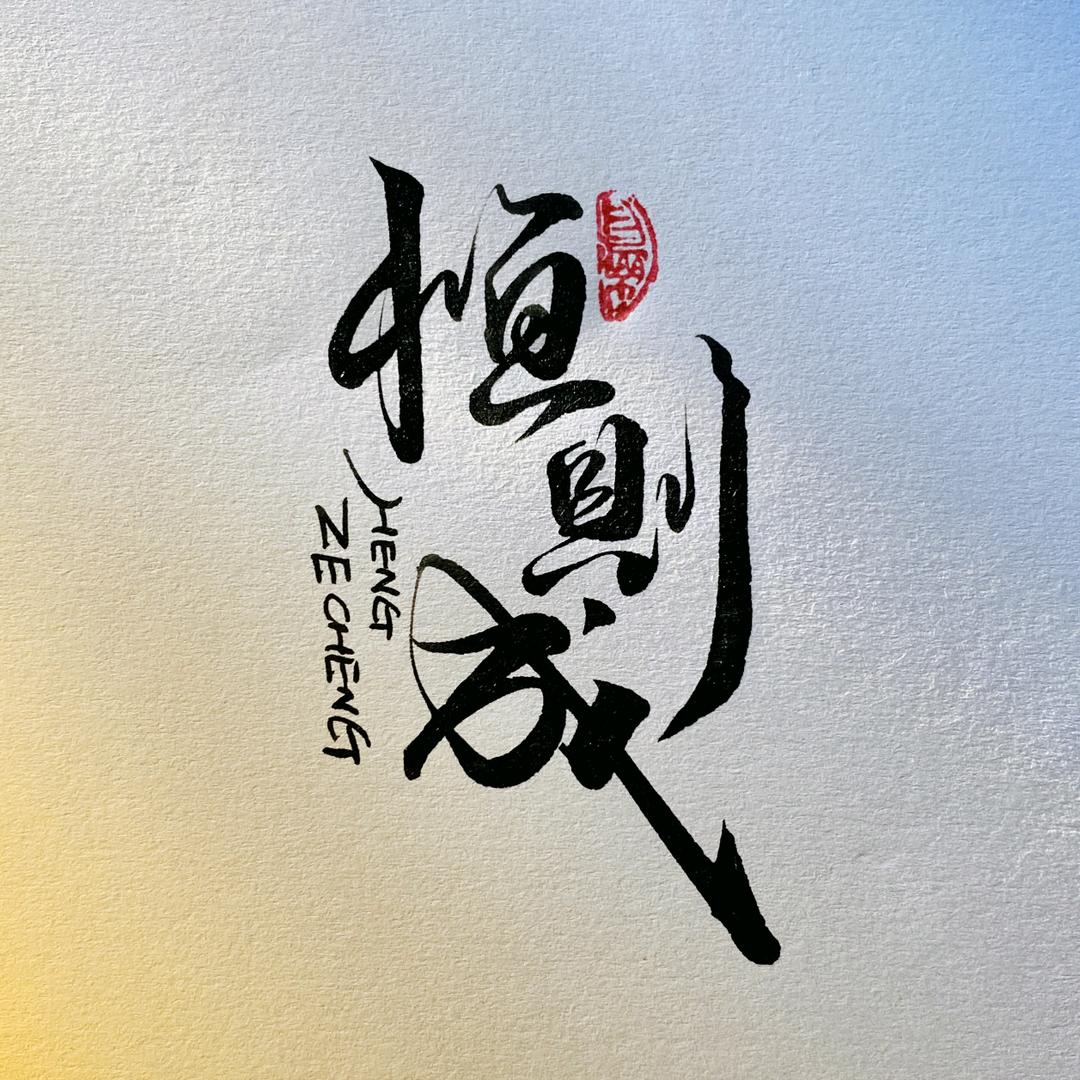 恒则成
HENG
ZE CHENG